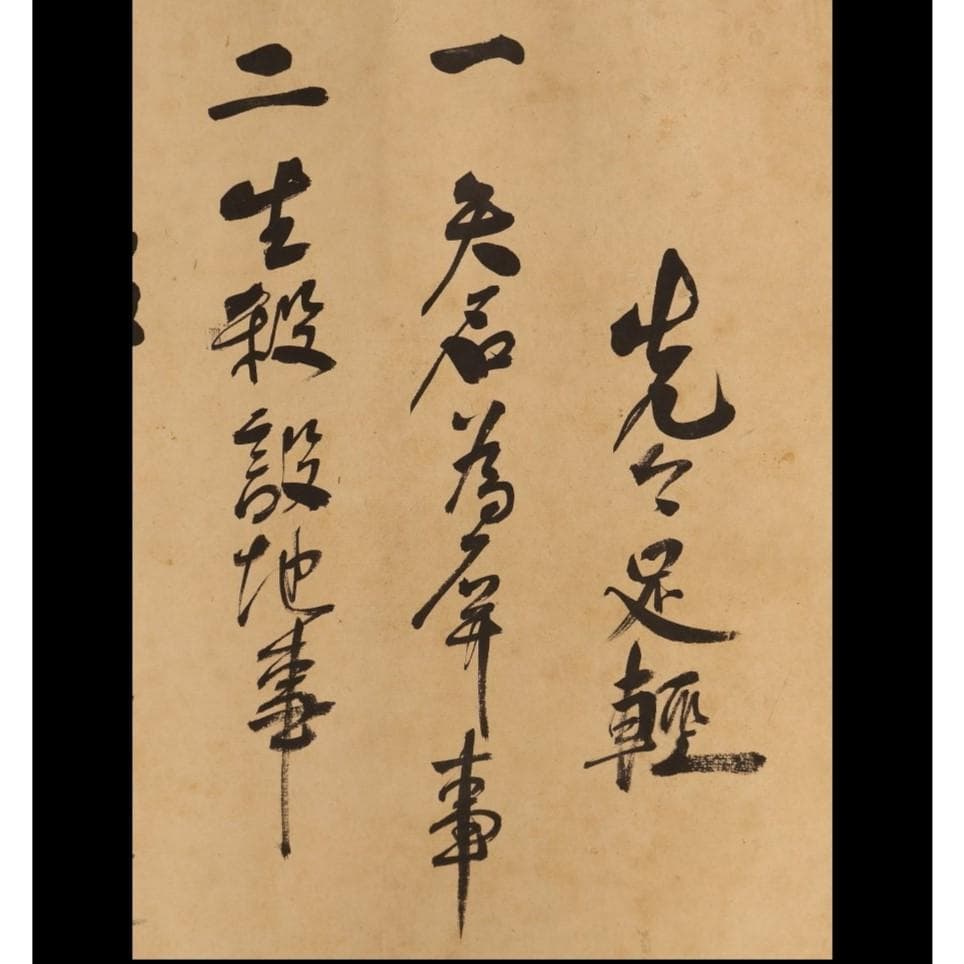 先々足輕
一 矢石為屏事
二 生殺設地事